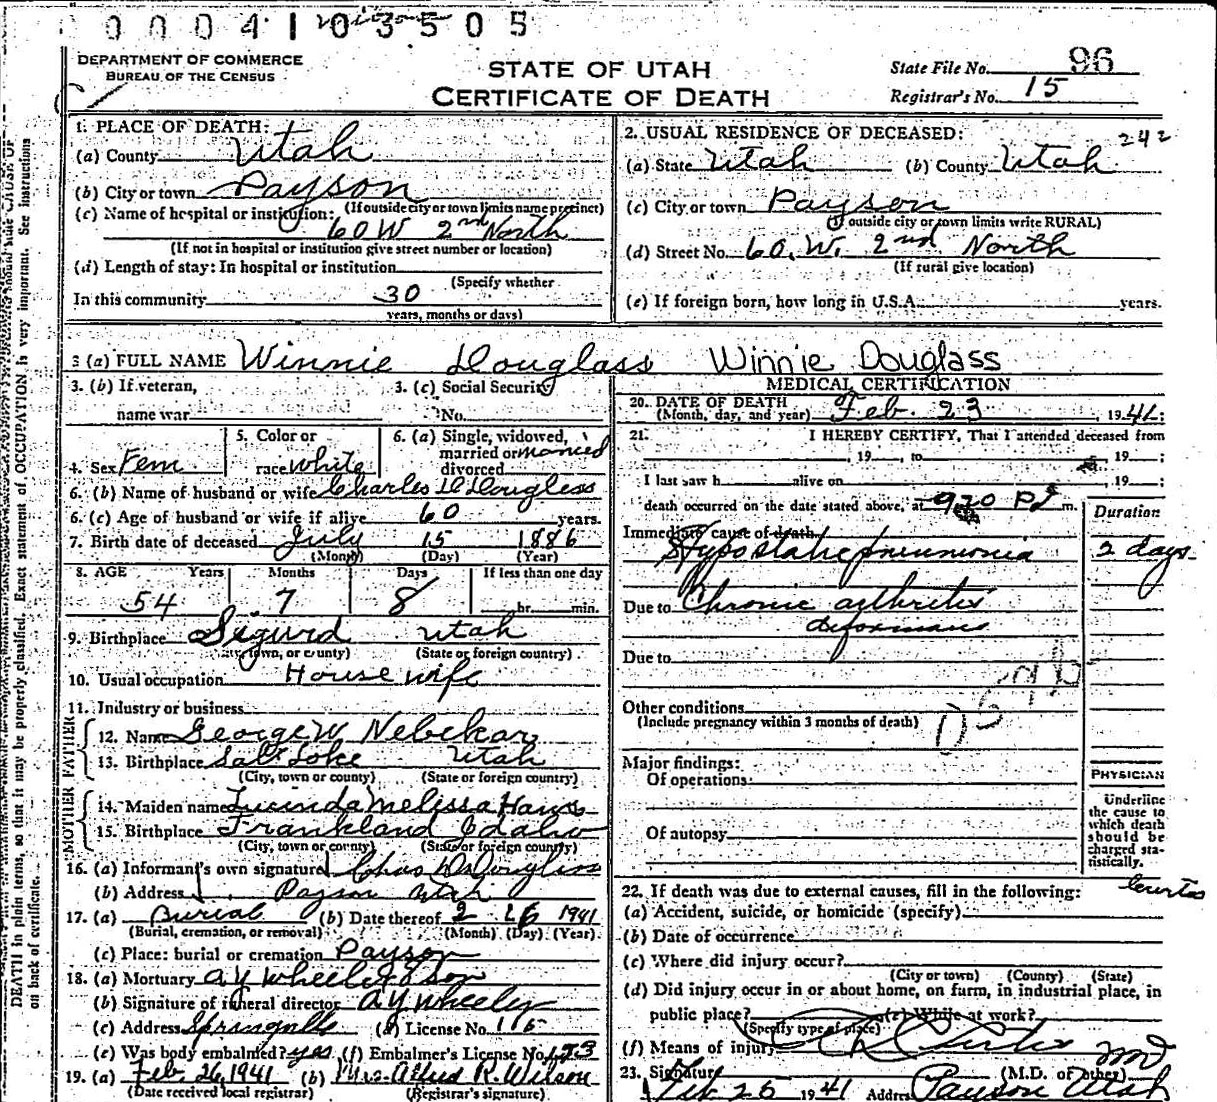 0004103505
DEPARTMENT OF COMMERCE
BUREAU OF THE CENSUS
STATE OF UTAH
CERTIFICATE OF DEATH
State File No. 96
Registrar's No. 15
1. PLACE OF DEATH:
(a) County Utah
(b) City or town Payson
(If outside city or town limits name precinct)
(c) Name of hospital or institution:
60 W 2nd North
(If not in hospital or institution give street number or location)
(d) Length of stay: In hospital or institution
(Specify whether
In this community 30
years, months or days)
2. USUAL RESIDENCE OF DECEASED: 242
(a) State Utah (b) County Utah
(c) City or town Payson
(If outside city or town limits write RURAL)
(d) Street No. 60. W. 2nd North
(If rural give location)
(e) If foreign born, how long in U.S.A. years.
3 (a) FULL NAME Winnie Douglass Winnie Douglass
3. (b) If veteran,
name war
3. (c) Social Security
No.
4. Sex Fem
5. Color or
race white
6. (a) Single, widowed,
married or married
divorced
6. (b) Name of husband or wife Charles D Douglass
6. (c) Age of husband or wife if alive 60 years.
7. Birth date of deceased July 15 1886
(Month) (Day) (Year)
8. AGE Years Months Days If less than one day
54 7 8 hr. min.
9. Birthplace Sigurd Utah
(City, town, or county) (State or foreign country)
10. Usual occupation House wife
11. Industry or business
FATHER
12. Name George W Nebekar
13. Birthplace Salt Lake Utah
(City, town or county) (State or foreign country)
MOTHER
14. Maiden name Lucinda Melissa Haws
15. Birthplace Frankland Idaho
(City, town or county) (State or foreign country)
16. (a) Informant's own signature Chas D Douglass
(b) Address Payson Utah
17. (a) Burial (b) Date thereof 2 26 1941
(Burial, cremation, or removal) (Month) (Day) (Year)
(c) Place: burial or cremation Payson
18. (a) Mortuary A Y Wheeler & Son
(b) Signature of funeral director A Y Wheeler
(c) Address Springville (d) License No. 116
(e) Was body embalmed? yes (f) Embalmer's License No.
19. (a) Feb 26, 1941 (b) Mrs. Alfred R. Wilson
(Date received local registrar) (Registrar's signature)
MEDICAL CERTIFICATION
20. DATE OF DEATH
(Month, day, and year) Feb. 23, 1941;
21. I HEREBY CERTIFY, That I attended deceased from
, 19 , to , 19 ;
I last saw h alive on , 19 ;
death occurred on the date stated above, at 920 P m.
Duration
Immediate cause of death
Hypostatic pneumonia 2 days
Due to Chronic arthritis
deformans
Due to
Other conditions
(Include pregnancy within 3 months of death)
Major findings:
Of operations
Of autopsy
PHYSICIAN
Underline
the cause to
which death
should be
charged sta-
tistically.
22. If death was due to external causes, fill in the following:
(a) Accident, suicide, or homicide (specify)
(b) Date of occurrence
(c) Where did injury occur?
(City or town) (County) (State)
(d) Did injury occur in or about home, on farm, in industrial place, in
public place? (e) While at work?
(Specify type of place)
(f) Means of injury
23. Signature MD
(M.D. or other)
Feb 25 1941 Address Payson Utah
DEATH in plain terms, so that it may be properly classified. Exact statement of OCCUPATION is very important. See instructions
on back of certificate.